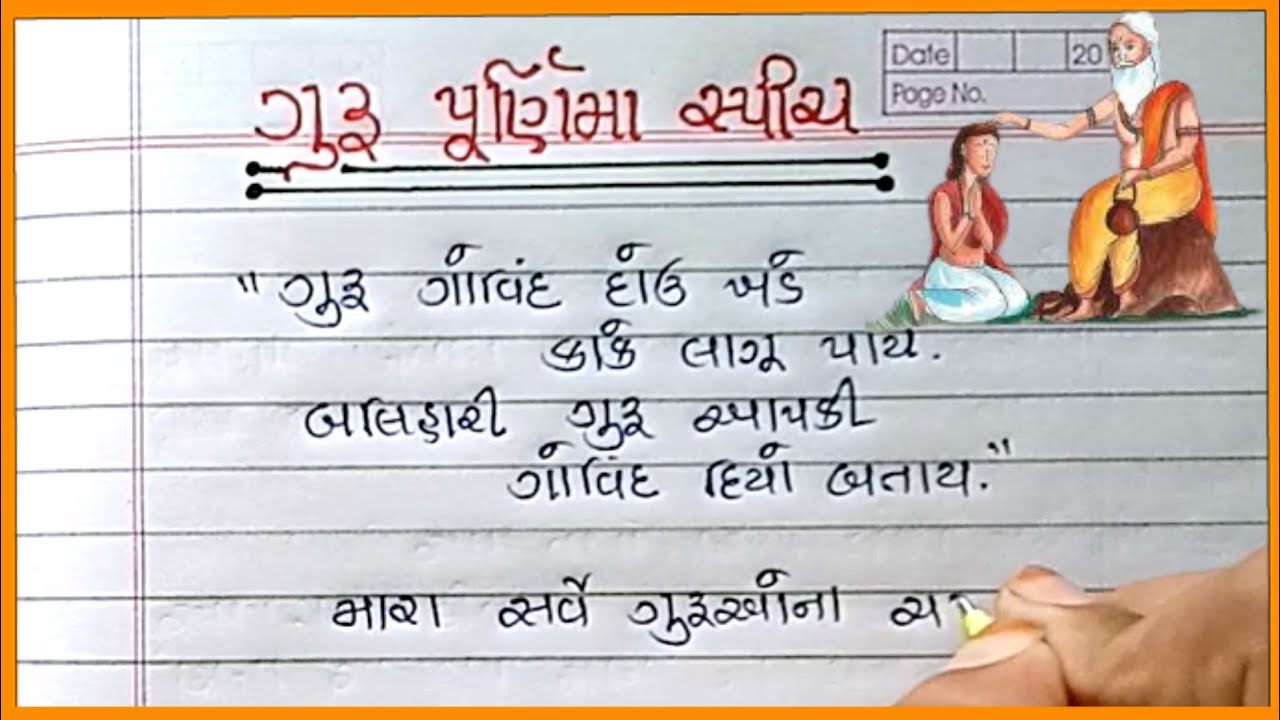 ગુરૂ પૂર્ણિમા સ્પીચ
Date 20
Page No.
"ગુરૂ ગોવિંદ દોઉ ખડે
કાકે લાગૂ પાય.
બલિહારી ગુરૂ આપકી
ગોવિંદ દિયો બતાય."
મારા સર્વે ગુરૂઓના ચ